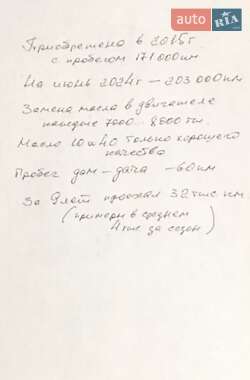 auto RIA.com
Приобретено в 2015г
с пробегом 171000км
На июнь 2024г – 203 000км
Замена масла в двигателе
каждые 7000 - 8000 км.
Масло 10w40 только хорошего
качества
Пробег дом – дача – 60км
За 9 лет проехал 32 тыс км
(примерно в среднем
4 тыс за сезон)